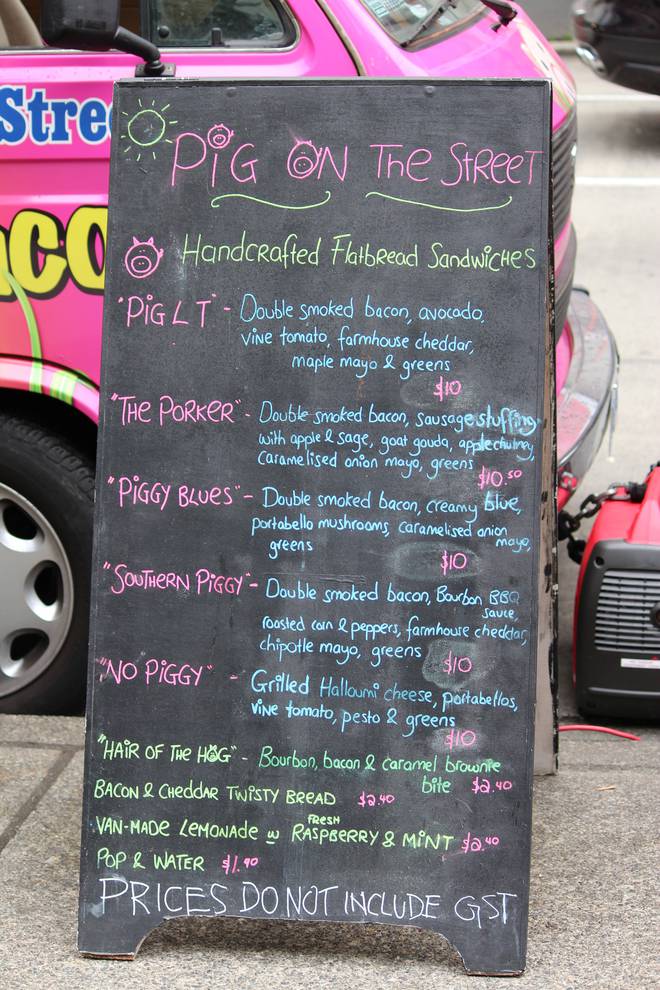 Stre
aco
PiG ON The STREET
Handcrafted Flatbread Sandwiches
"PiG L T" - Double smoked bacon, avocado,
vine tomato, farmhouse cheddar,
maple mayo & greens
$10
"THE PORKER" - Double smoked bacon, sausage stuffing
with apple & sage, goat gouda, apple chutney,
caramelised onion mayo, greens
$10.50
"PIGGY BLUES" - Double smoked bacon, creamy blue,
portabello mushrooms, caramelised onion
mayo,
greens
$10
"SOUTHERN PIGGY" - Double smoked bacon, Bourbon BBQ
sauce,
roasted corn & peppers, farmhouse cheddar,
chipotle mayo, greens
$10
"NO PIGGY" - Grilled Halloumi cheese, portabellos,
vine tomato, pesto & greens
$10
"HAIR OF THE HOG" - Bourbon, bacon & caramel brownie
bite $2.40
BACON & CHEDDAR TWISTY BREAD $2.40
VAN-MADE LEMONADE w FRESH RASPBERRY & MINT $2.40
POP & WATER $1.90
PRICES DO NOT INCLUDE GST